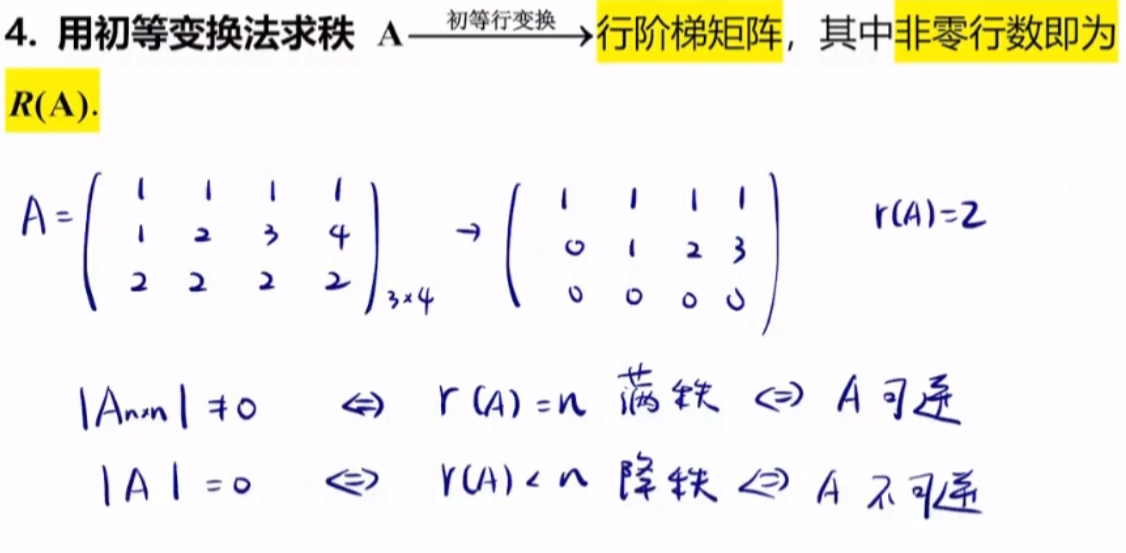 4. 用初等变换法求秩 A 初等行变换→行阶梯矩阵，其中非零行数即为
R(A).
A = ( 1 1 1 1 → ( 1 1 1 1 r(A)=2
1 2 3 4 0 1 2 3
2 2 2 2 )3×4 0 0 0 0 )
|An×n| ≠ 0 ⇔ r(A) = n 满秩 ⇔ A 可逆
|A| = 0 ⇔ r(A) < n 降秩 ⇔ A 不可逆